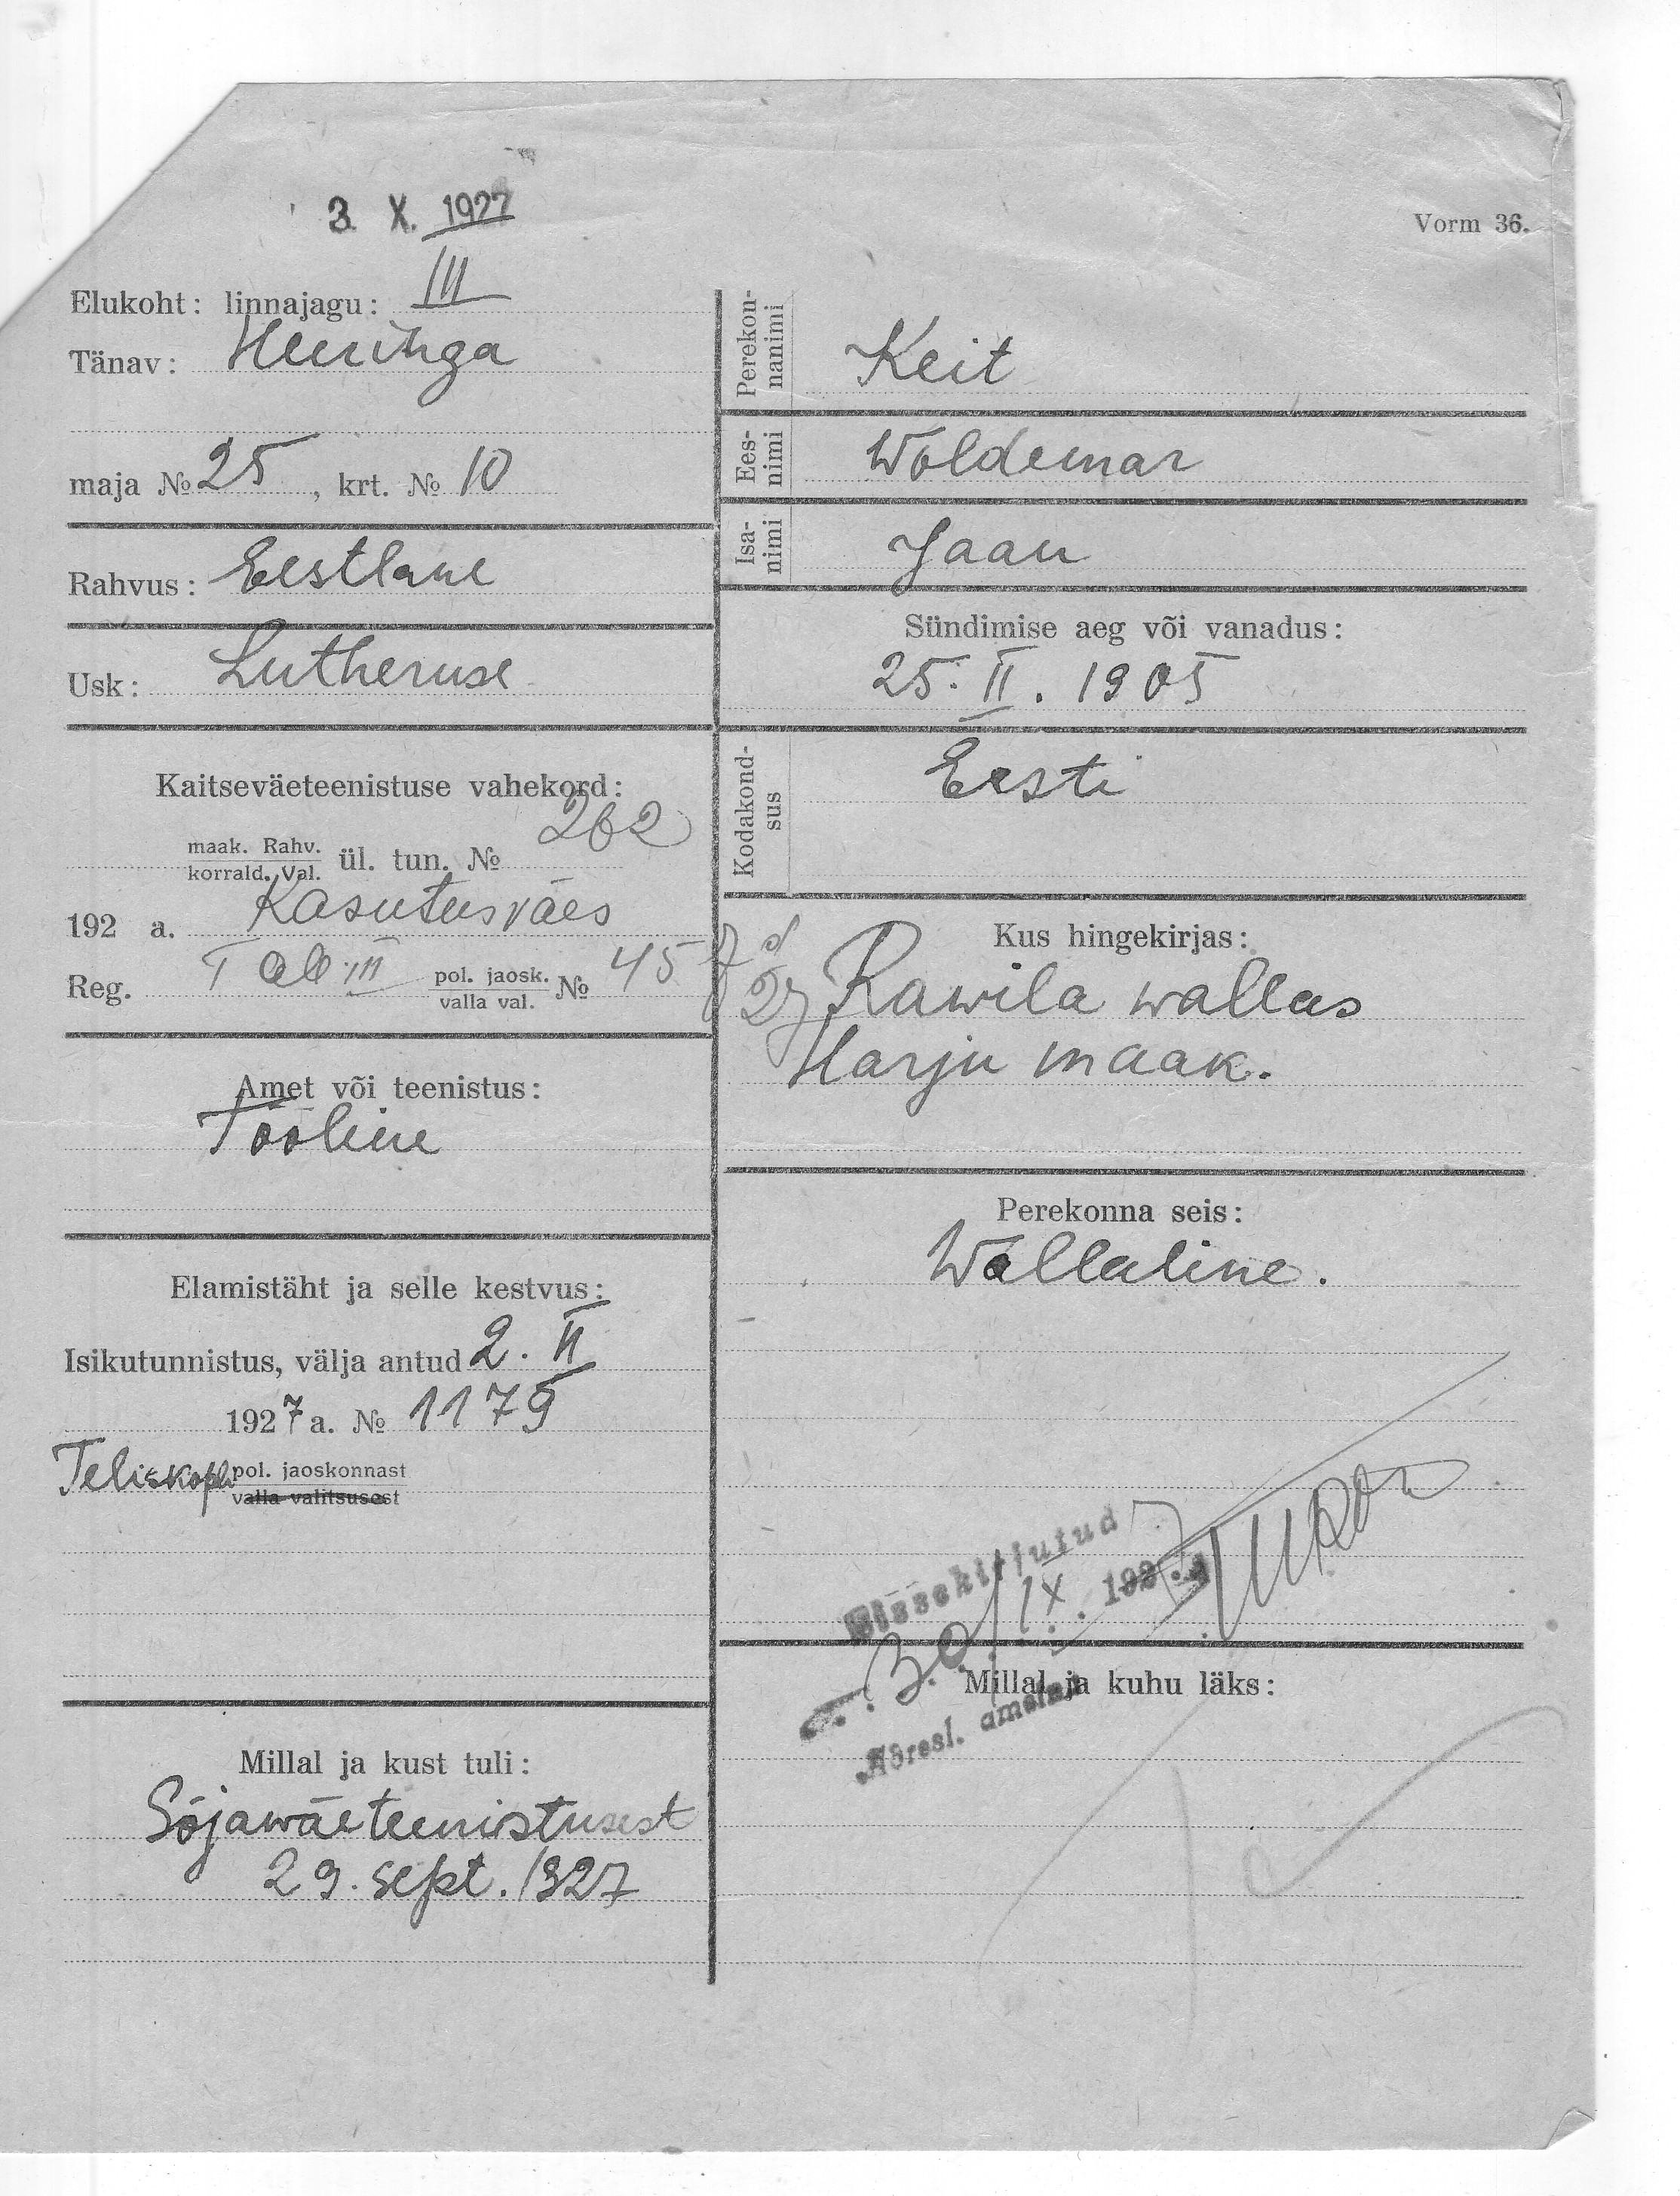 3. X. 1927
Vorm 36.
Elukoht: linnajagu: III
Tänav: Heeringa
maja № 25, krt. № 10
Rahvus: Eestlane
Usk: Lutheruse
Kaitseväeteenistuse vahekord:
maak. Rahv.
korrald. Val. ül. tun. № 262
192 a. Kasutusväes
Reg. III pol. jaosk.
valla val. № 45
Amet või teenistus:
Tööline
Elamistäht ja selle kestvus:
Isikutunnistus, välja antud 2. II
1927 a. № 1179
Teliskopli pol. jaoskonnast
valla valitsusest
Millal ja kust tuli:
Sõjawäeteenistusest
29. sept. 1927
Perekonnanimi Keit
Eesnimi Woldemar
Isanimi Jaan
Sündimise aeg või vanadus:
25. II. 1905
Kodakondsus Eesti
Kus hingekirjas:
Rawila wallas
Harju maak.
Perekonna seis:
Wallaline.
Sissekirjutud
30/IX. 192
Adresl. ametnik
Millal ja kuhu läks: